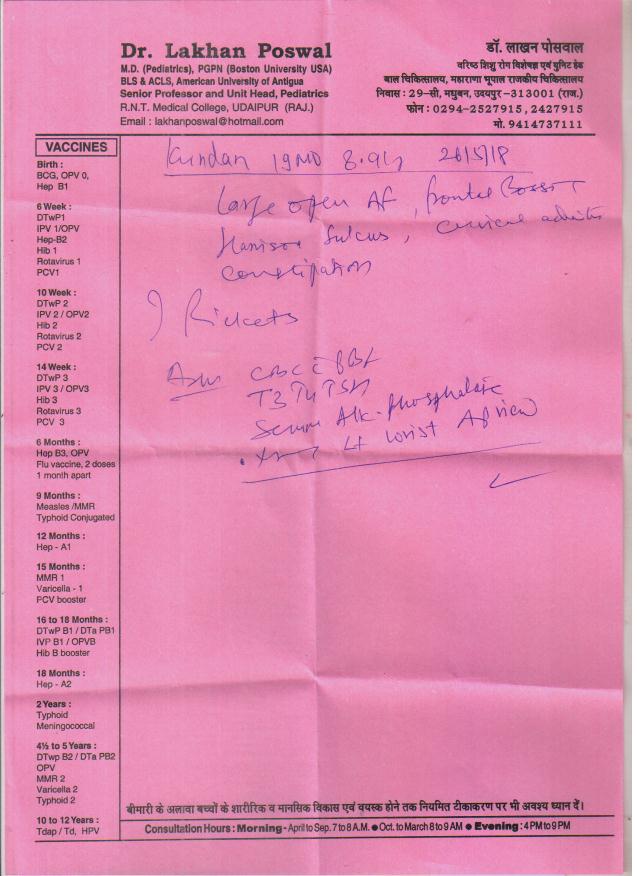 Dr. Lakhan Poswal
M.D. (Pediatrics), PGPN (Boston University USA)
BLS & ACLS, American University of Antigua
Senior Professor and Unit Head, Pediatrics
R.N.T. Medical College, UDAIPUR (RAJ.)
Email : lakhanposwal@hotmail.com
डॉ. लाखन पोसवाल
वरिष्ठ शिशु रोग विशेषज्ञ एवं युनिट हेड
बाल चिकित्सालय, महाराणा भूपाल राजकीय चिकित्सालय
निवास : 29-सी, मधुबन, उदयपुर -313001 (राज.)
फोन : 0294-2527915, 2427915
मो. 9414737111
VACCINES
Birth :
BCG, OPV 0,
Hep B1
6 Week :
DTwP1
IPV 1/OPV
Hep-B2
Hib 1
Rotavirus 1
PCV1
10 Week :
DTwP 2
IPV 2 / OPV2
Hib 2
Rotavirus 2
PCV 2
14 Week :
DTwP 3
IPV 3 / OPV3
Hib 3
Rotavirus 3
PCV 3
6 Months :
Hep B3, OPV
Flu vaccine, 2 doses
1 month apart
9 Months :
Measles /MMR
Typhoid Conjugated
12 Months :
Hep - A1
15 Months :
MMR 1
Varicella - 1
PCV booster
16 to 18 Months :
DTwP B1 / DTa PB1
IVP B1 / OPVB
Hib B booster
18 Months :
Hep - A2
2 Years :
Typhoid
Meningococcal
4½ to 5 Years :
DTwp B2 / DTa PB2
OPV
MMR 2
Varicella 2
Typhoid 2
10 to 12 Years :
Tdap / Td, HPV
Kundan 19MO 8.9kg 26/5/18
Large open AF, frontal Boss
Harrison Sulcus, cervical
constipation
? Rickets
CBC c PBF
T3 T4 TSH
Serum Alk. phosphatase
wrist AP view
बीमारी के अलावा बच्चों के शारीरिक व मानसिक विकास एवं वयस्क होने तक नियमित टीकाकरण पर भी अवश्य ध्यान दें।
Consultation Hours : Morning - April to Sep. 7 to 8 A.M. ● Oct. to March 8 to 9 AM ● Evening : 4 PM to 9 PM